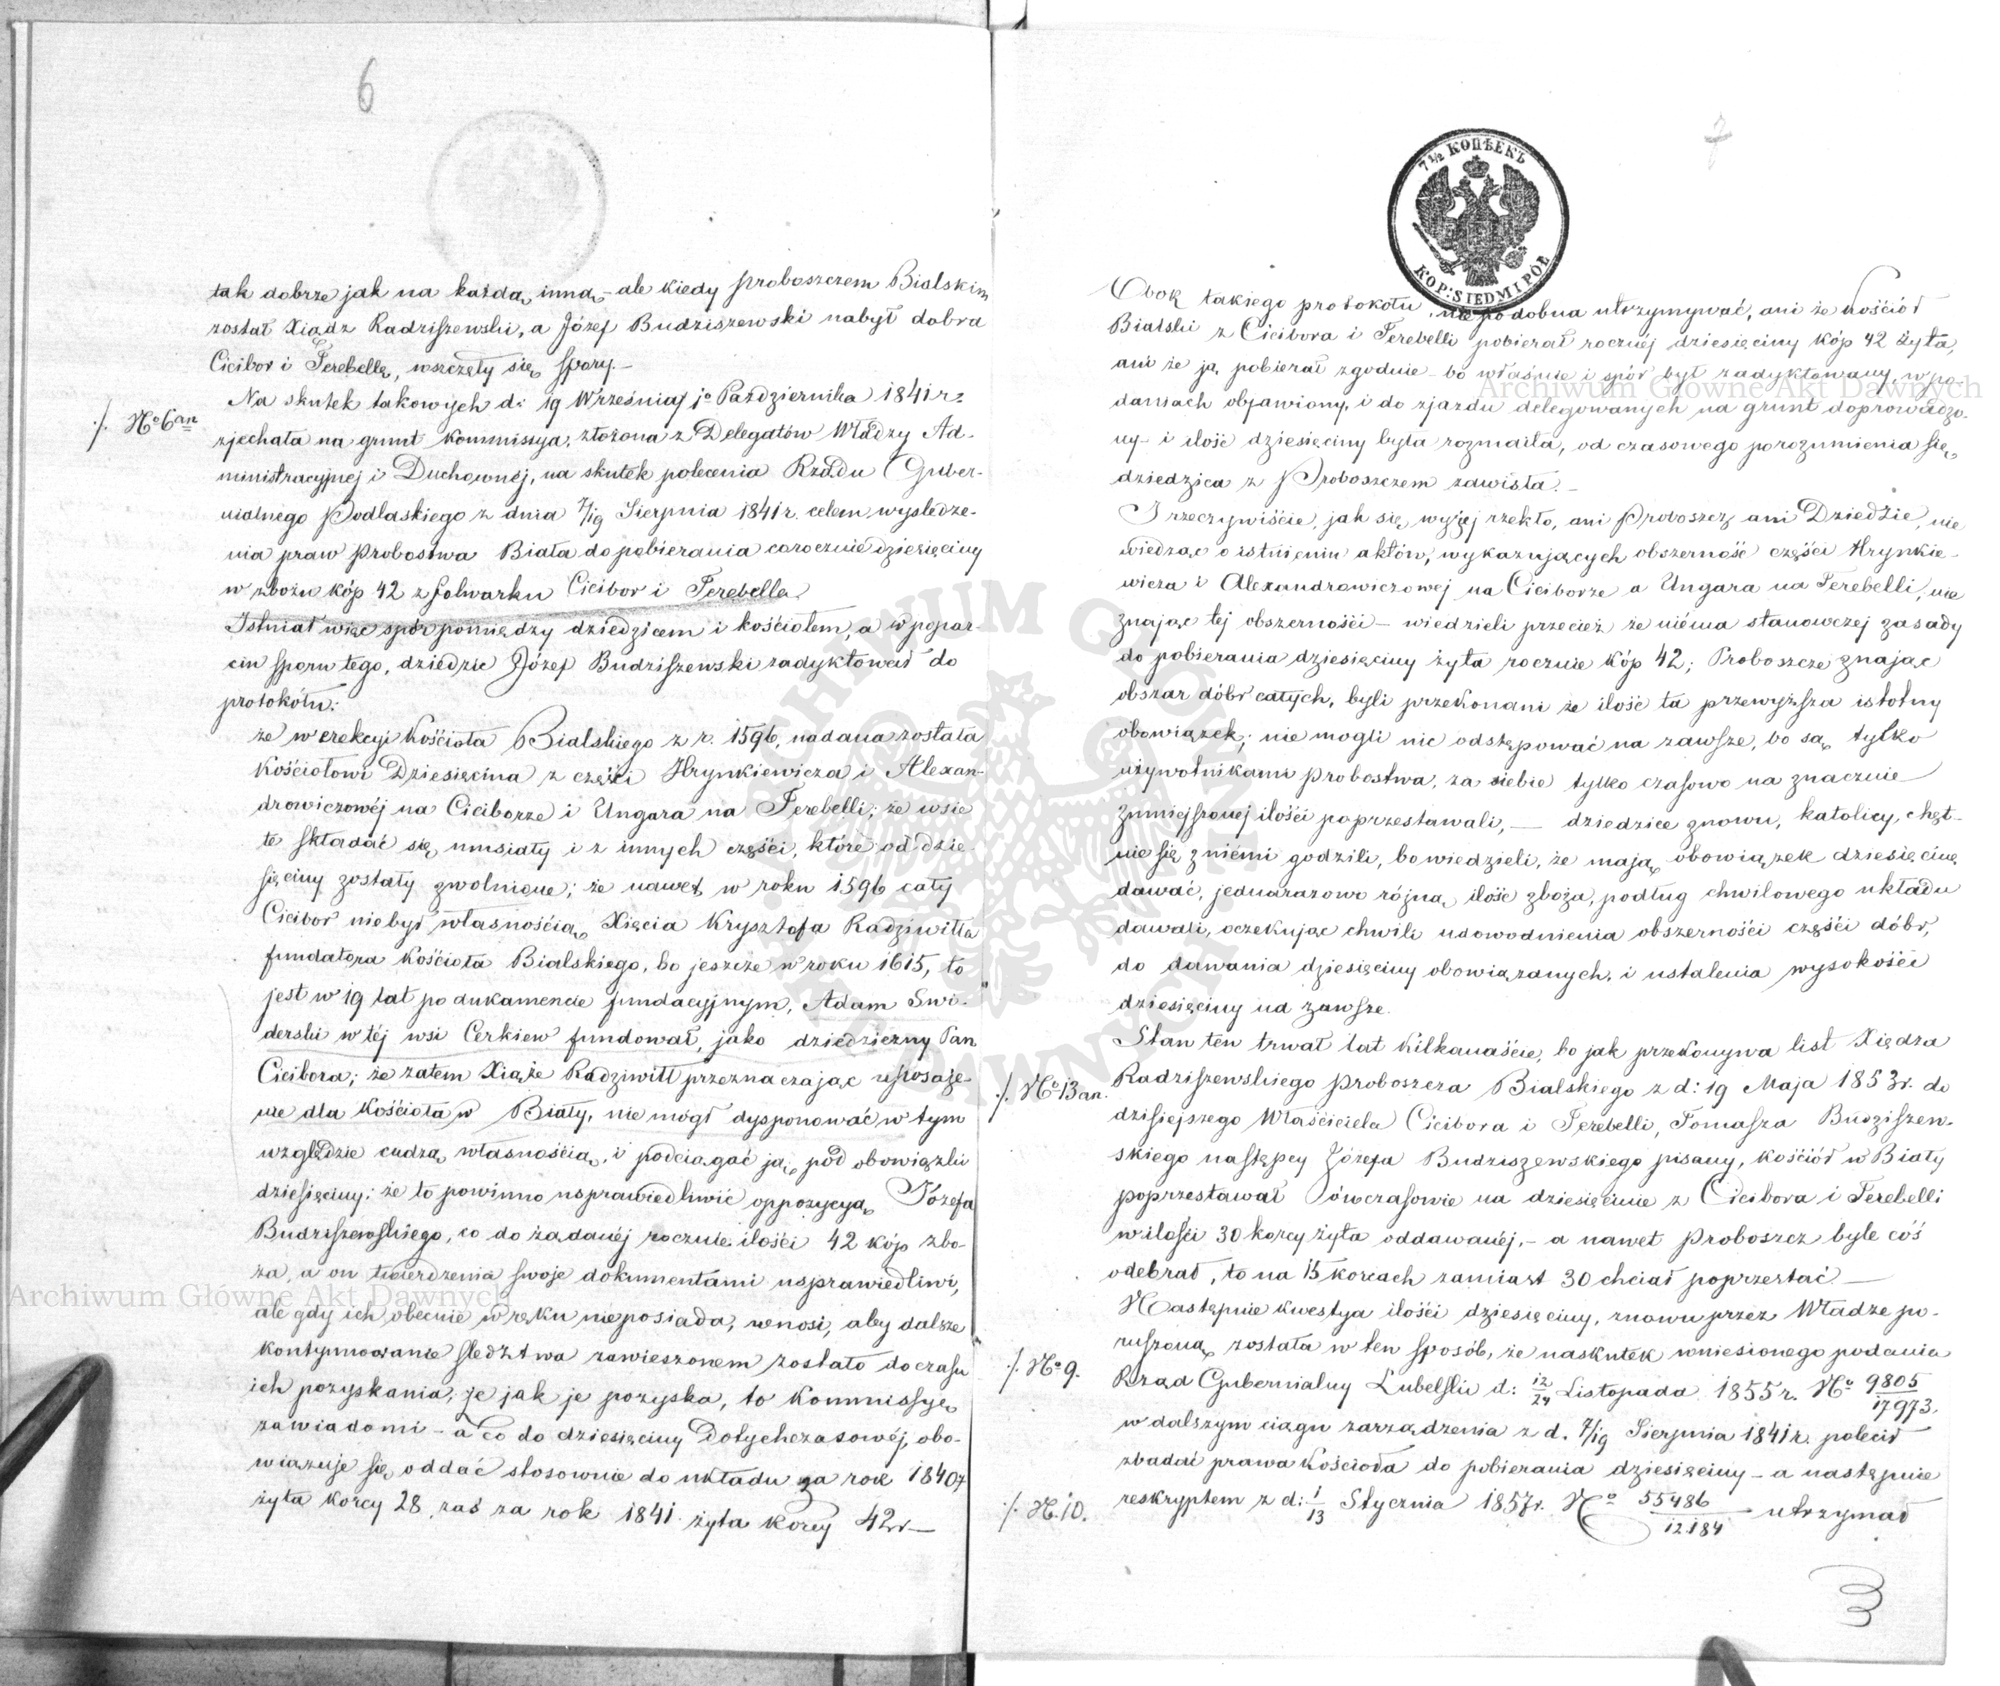 6
tak dobrze jak na każdą inną, - ale kiedy proboszczem Bialskim
został Xiądz Radziszewski, a Józef Budziszewski nabył dobra
Cicibor i Terebellę, wszczęły się spory. -
Na skutek takowych d: 19 Września/ 1o Października 1841 r:
./. No 6 an
zjechała na grunt Kommissya, złożona z Delegatów Władzy Ad-
ministracyjnej i Duchownéj, na skutek polecenia Rządu Guber-
nialnego Podlaskiego z dnia 7/19 Sierpnia 1841 r. celem wyśledze-
nia praw Probostwa Biała do pobierania corocznie dziesięciny
w zbożu kóp 42 z folwarku Cicibor i Terebella
Istniał więc spór pomiędzy dziedzicem i kościołem, a w popar-
ciu sporu tego, dziedzic Józef Budziszewski zadyktował do
protokółu:
że w erekcyi Kościoła Bialskiego z r. 1596, nadana została
Kościołowi Dziesięcina z części Hrynkiewicza i Alexan-
drowiczowéj na Ciciborze i Ungara na Terebelli; że wsie
te składać się musiały i z innych części, które od dzie-
sięciny zostały zwolnione; że nawet w roku 1596 cały
Cicibor niebył własnością Xięcia Krysztofa Radziwiłła
fundatora Kościoła Bialskiego, bo jeszcze w roku 1615, to
jest w 19 lat po dukamencie fundacyjnym, Adam Swi-
derski w téj wsi Cerkiew fundował, jako dziedziczny Pan
Cicibora; że zatem Xiąże Radziwiłł przeznaczając uposaże-
nie dla Kościoła w Biały, nie mógł dysponować w tym
względzie cudzą własnością, i podciągać ją pod obowiązki
dziesięciny; że to powinno usprawiedliwić oppozycyą Józefa
Budziszewskiego, co do żądanéj rocznie ilości 42 kóp zbo-
ża, a on twierdzenia swoje dokumentami usprawiedliwi,
ale gdy ich obecnie w ręku nieposiada, wnosi, aby dalsze
kontynuowanie śledztwa zawieszonem zostało do czasu
ich pozyskania; że jak je pozyska, to Kommissyę
zawiadomi - a co do dziesięciny Dotychczasowéj, obo-
wiązuje się oddać stosownie do układu za rok 1840
żyta korcy 28, zaś za rok 1841 żyta korcy 42. -
7
7 1/2 КОПѢЕКЪ
KOP: SIEDM I PÓŁ
Obok takiego protokołu, nie podobna utrzymywać, ani że kościół
Bialski z Cicibora i Terebelli pobierał rocznéj dziesięciny kóp 42 żyta,
ani że ją pobierał zgodnie - bo właśnie i spór był zadyktowany, w po-
daniach objawiony, i do zjazdu delegowanych na grunt doprowadzo-
ny - i ilość dziesięciny była rozmaita, od czasowego porozumienia się
dziedzica z Proboszczem zawisła. -
I rzeczywiście, jak się wyżej rzekło, ani Proboszcz ani Dziedzic, nie
wiedząc o istnieniu aktów, wykazujących obszerność części Hrynkie-
wicza i Alexandrowiczowej na Ciciborze a Ungara na Terebelli, nie
znając téj obszerności - wiedzieli przecież że niéma stanowczej zasady
do pobierania dziesięciny żyta rocznie kóp 42; Proboszcze znając
obszar dóbr całych, byli przekonani że ilość ta przewyższa istotny
obowiązek; nie mogli nic odstępować na zawsze, bo są tylko
używotnikami probostwa, za siebie tylko czasowo na znacznie
zmniejszonej ilości poprzestawali, - dziedzice znowu, katolicy, chęt-
nie się z niémi godzili, bo wiedzieli, że mają obowiązek dziesięcinę
dawać, jednorazowo różną ilość zboża, podług chwilowego układu
dawali, oczekując chwili udowodnienia obszerności części dóbr,
do dawania dziesięciny obowiązanych, i ustalenia wysokości
dziesięciny na zawsze.
Stan ten trwał lat kilkanaście, bo jak przekonywa list Xiędza
./. No 13 an.
Radziszewskiego proboszcza Bialskiego z d: 19 Maja 1853 r. do
dzisiejszego Właściciela Cicibora i Terebelli, Tomasza Budziszew-
skiego następcy Józefa Budziszewskiego pisany, Kościół w Biały
poprzestawał ówczasowie na dziesięcinie z Cicibora i Terebelli
w ilości 30 korcy żyta oddawanéj, - a nawet Proboszcz byle cóś
odebrał, to na 15 korcach zamiast 30 chciał poprzestać -
Następnie kwestya ilości dziesięciny, znowu przez Władze po-
ruszoną została w ten sposób, że naskutek wniesionego podania
./. No 9.
Rząd Gubernialny Lubelski d: 12/24 Listopada 1855 r. No 9805/17973.
w dalszym ciągu zarządzenia z d. 7/19 Sierpnia 1841 r. polecił
zbadać prawa Kościoła do pobierania dziesięciny - a następnie
./. N. 10.
reskryptem z d: 1/13 Stycznia 1857 r. No 55486/12184 utrzymał
Archiwum Główne Akt Dawnych
Archiwum Główne Akt Dawnych
ARCHIWUM GŁÓWNE AKT DAWNYCH